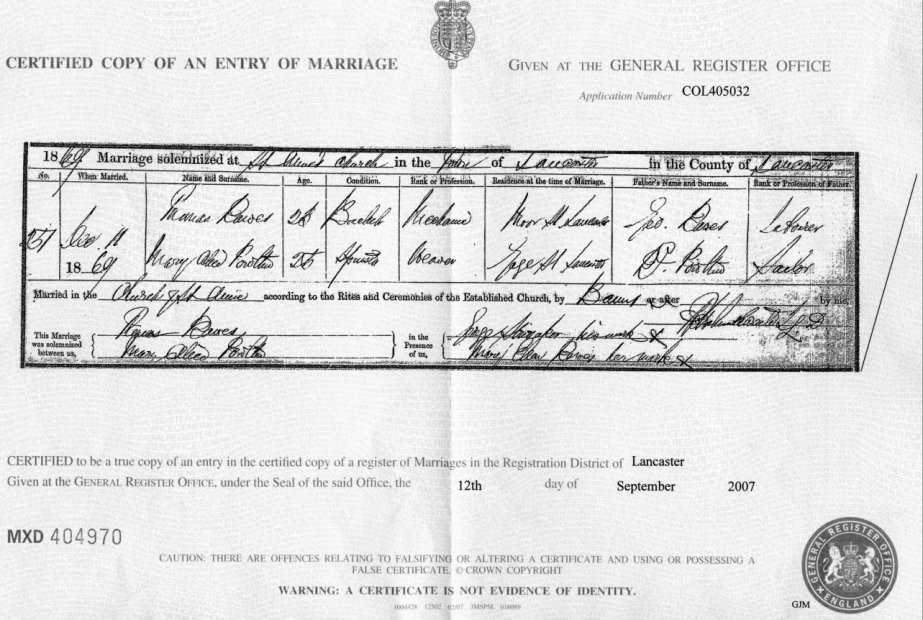 CERTIFIED COPY OF AN ENTRY OF MARRIAGE
GIVEN AT THE GENERAL REGISTER OFFICE
Application Number COL405032
1869 Marriage solemnized at St Anne's Church in the town of Lancaster in the County of Lancaster
No. When Married. Name and Surname. Age. Condition. Rank or Profession. Residence at the time of Marriage. Father's Name and Surname. Rank or Profession of Father.
Thomas Bachelor Mechanic Moor St Lancaster Geo. Labourer
1869 Mary Weaver St Lancaster Sailor
Married in the Church of St Anne according to the Rites and Ceremonies of the Established Church, by Banns or after by me,
This Marriage was solemnized between us,
Thomas
Mary
in the Presence of us,
his mark x
Mary her mark x
CERTIFIED to be a true copy of an entry in the certified copy of a register of Marriages in the Registration District of Lancaster
Given at the GENERAL REGISTER OFFICE, under the Seal of the said Office, the 12th day of September 2007
MXD 404970
CAUTION: THERE ARE OFFENCES RELATING TO FALSIFYING OR ALTERING A CERTIFICATE AND USING OR POSSESSING A
FALSE CERTIFICATE. © CROWN COPYRIGHT
WARNING: A CERTIFICATE IS NOT EVIDENCE OF IDENTITY.
GJM
GENERAL REGISTER OFFICE
ENGLAND